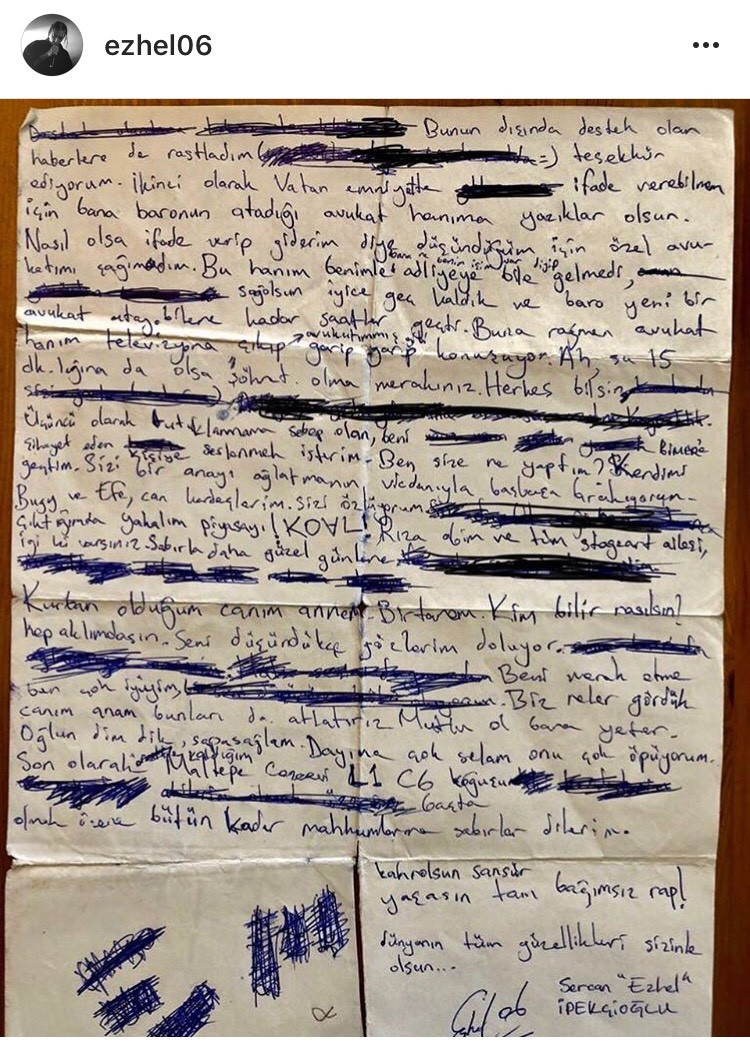 ezhel06
Bunun dışında destek olan
haberlere de rastladım =) teşekkür
ediyorum. İkinci olarak Vatan emniyette ifade verebilmem
için bana baronun atadığı avukat hanıma yazıklar olsun.
Nasıl olsa ifade verip giderim diye düşündüğüm için özel avu-
katımı çağırmadım. Bu hanım benimle adliyeye bile gelmedi,
sağolsun iyice geç kaldık ve baro yeni bir
avukat atayabilene kadar saatler geçti. Buna rağmen avukat
hanım televizyona çıkıp avukatımmış gibi garip garip konuşuyor. Ah, şu 15
dk. lığına da olsa şöhret olma merakınız. Herkes bilsin
Üçüncü olarak tutuklanmama sebep olan, beni BİMER'e
şikayet eden kişiye seslenmek isterim. Ben size ne yaptım? Kendimi
geçtim. Sizi bir anayı ağlatmanın vicdanıyla başbaşa bırakıyorum.
Bugy ve Efe, can kardeşlerim. Sizi özlüyorum
çıktığımda yakalım piyasayı! KOVL! Rıza abim ve tüm stageart ailesi,
iyi ki varsınız. Sabırla daha güzel günlere
Kurban olduğum canım annem. Birtanem. Kim bilir nasılsın?
hep aklımdasın. Seni düşündükçe gözlerim doluyor.
Beni merak etme
ben çok iyiyim, Biz neler gördük
canım anam bunları da atlatırız Mutlu ol bana yeter.
Oğlun dimdik, sapasağlam. Dayıma çok selam onu çok öpüyorum.
Son olarak kaldığım Maltepe Cezaevi L1 C6 koğuşu
başta
olmak üzere bütün kader mahkumlarına sabırlar dilerim.
kahrolsun sansür
yaşasın tam bağımsız rap!
dünyanın tüm güzellikleri sizinle
olsun...
Sercan "Ezhel"
İPEKÇİOĞLU